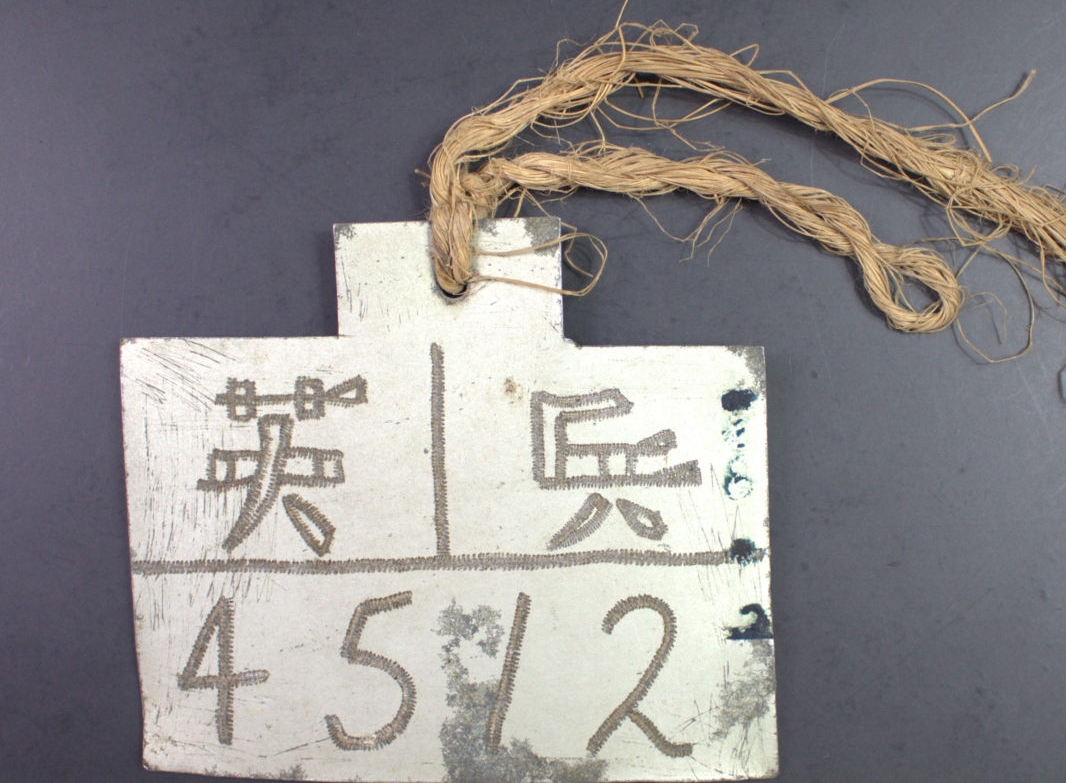 英 兵
4512